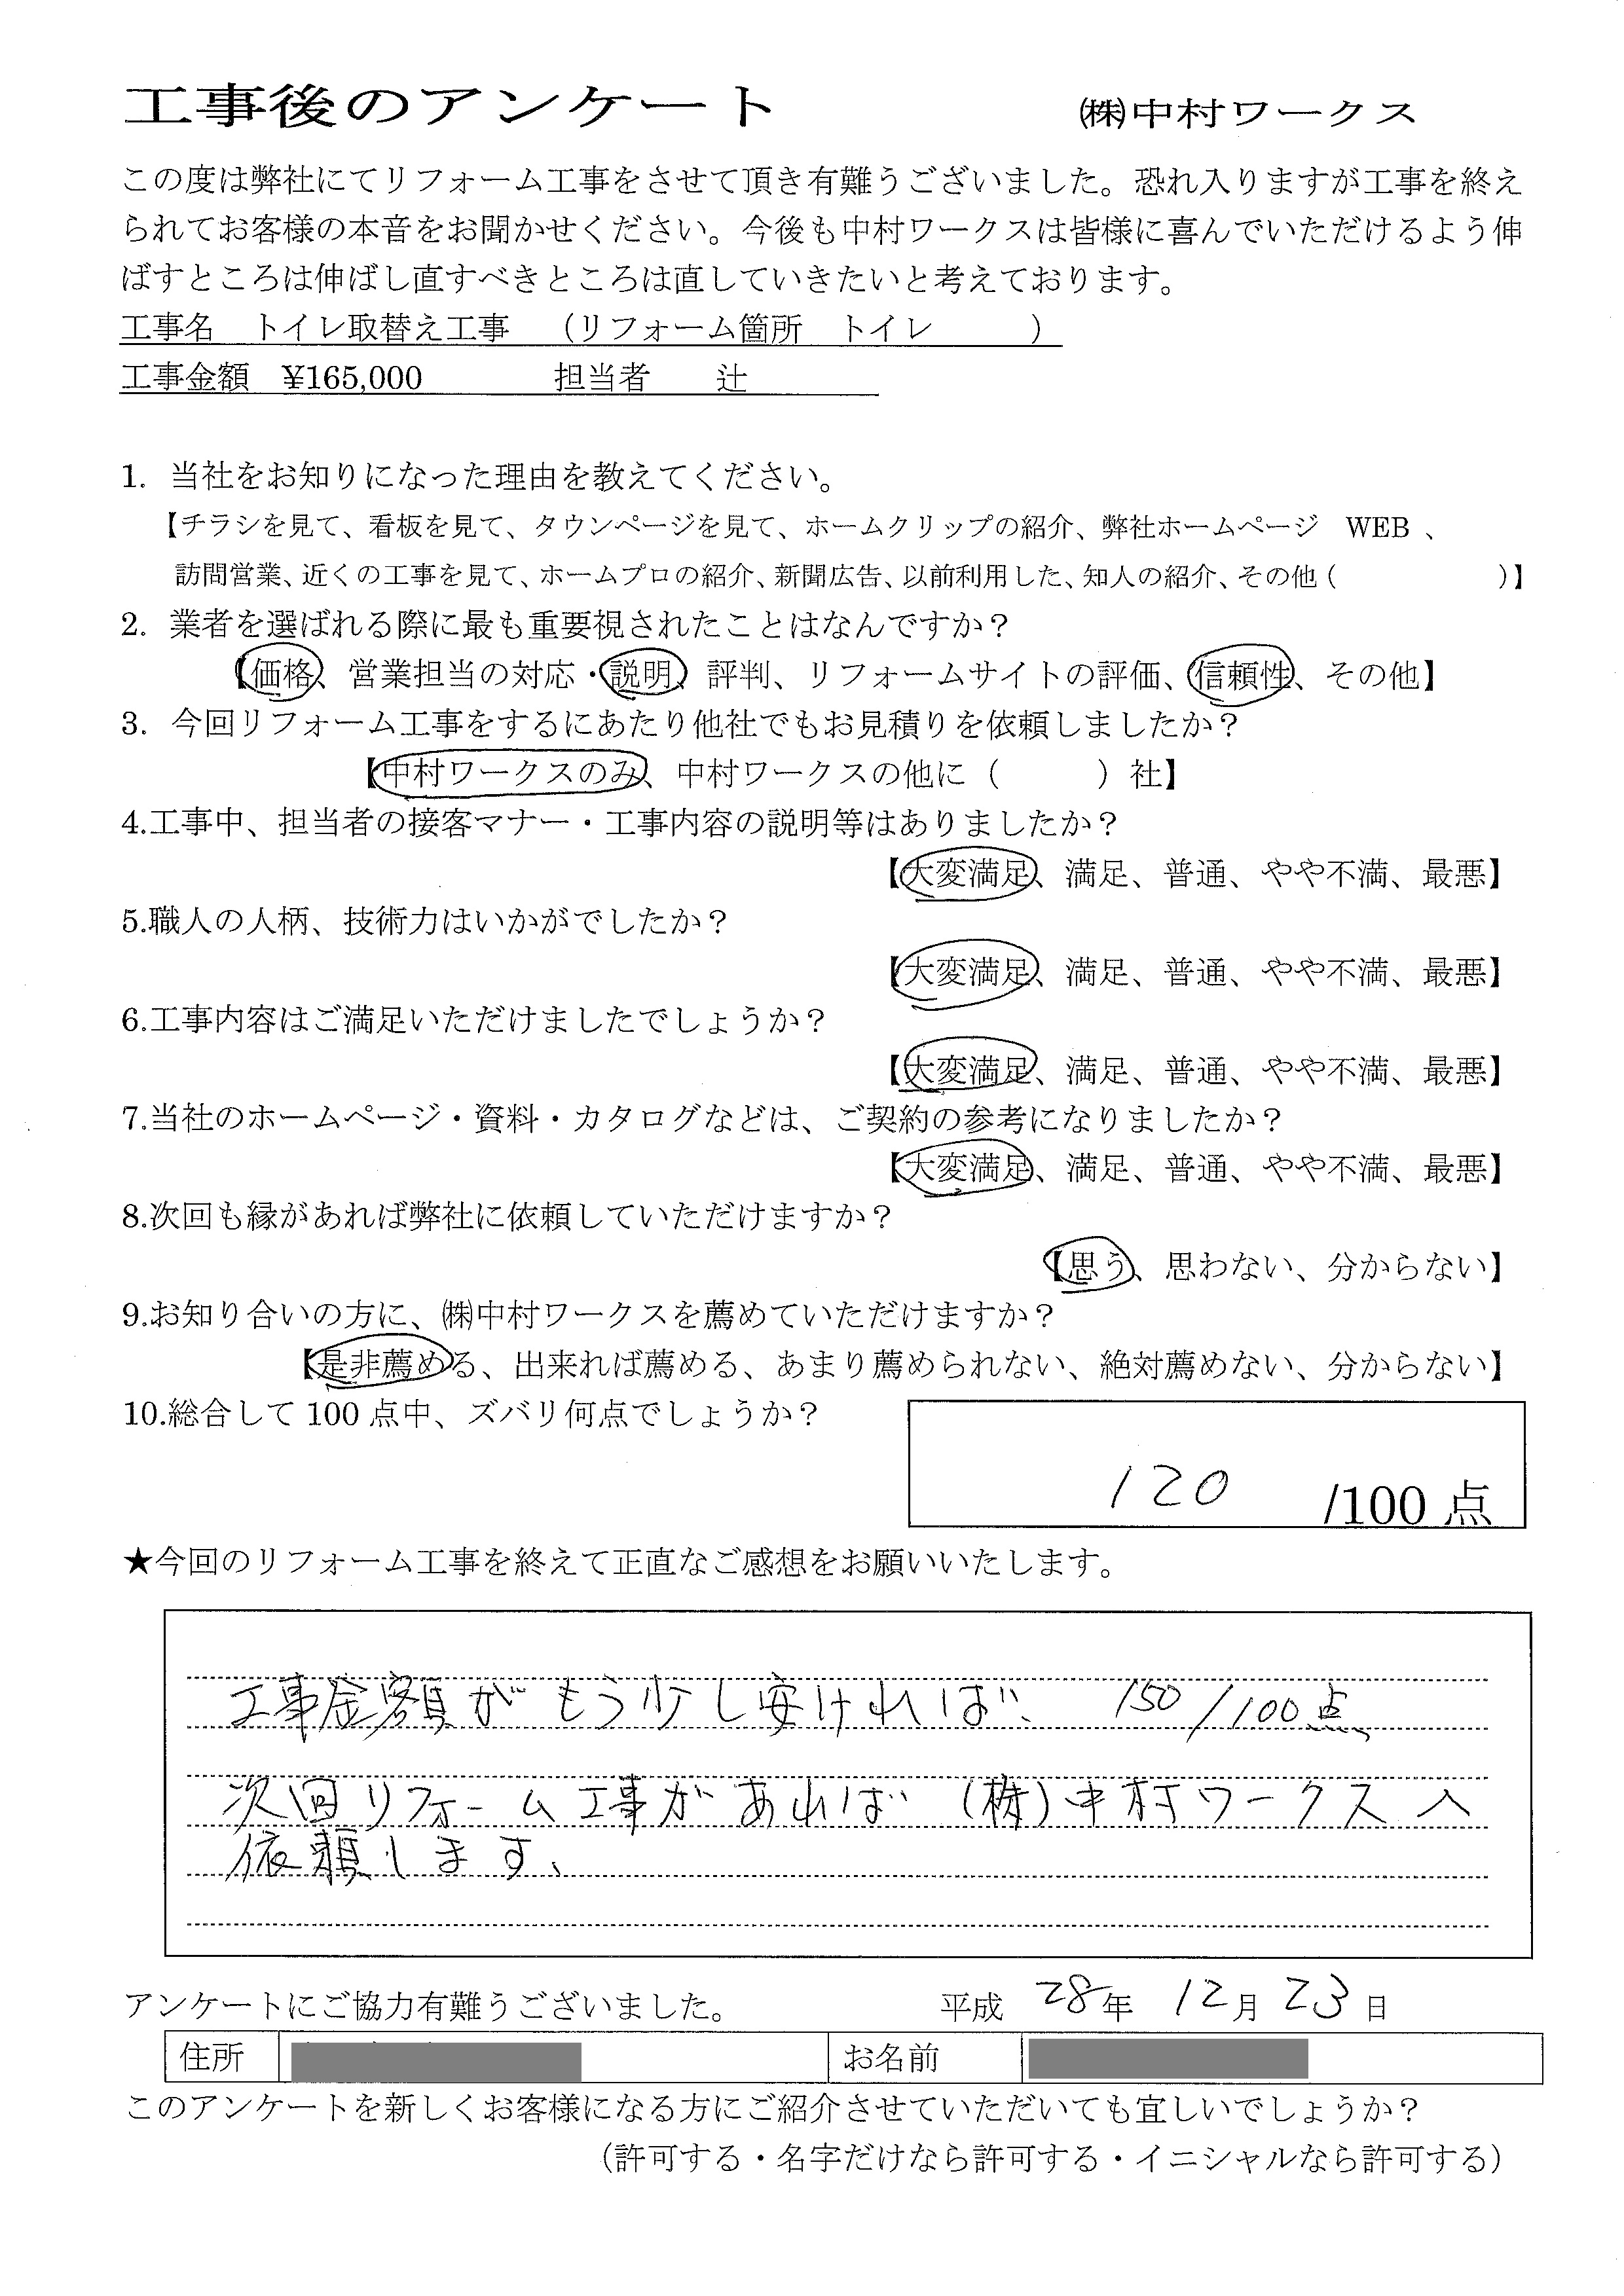 工事後のアンケート　㈱中村ワークス
この度は弊社にてリフォーム工事をさせて頂き有難うございました。恐れ入りますが工事を終え
られてお客様の本音をお聞かせください。今後も中村ワークスは皆様に喜んでいただけるよう伸
ばすところは伸ばし直すべきところは直していきたいと考えております。
工事名　トイレ取替え工事　（リフォーム箇所　トイレ　　　）
工事金額　¥165,000　　　担当者　　辻
1. 当社をお知りになった理由を教えてください。
【チラシを見て、看板を見て、タウンページを見て、ホームクリップの紹介、弊社ホームページ　WEB 、
訪問営業、近くの工事を見て、ホームプロの紹介、新聞広告、以前利用した、知人の紹介、その他（　　　　　）】
2. 業者を選ばれる際に最も重要視されたことはなんですか？
【価格、営業担当の対応・説明、評判、リフォームサイトの評価、信頼性、その他】
3. 今回リフォーム工事をするにあたり他社でもお見積りを依頼しましたか？
【中村ワークスのみ、中村ワークスの他に（　　　）社】
4.工事中、担当者の接客マナー・工事内容の説明等はありましたか？
【大変満足、満足、普通、やや不満、最悪】
5.職人の人柄、技術力はいかがでしたか？
【大変満足、満足、普通、やや不満、最悪】
6.工事内容はご満足いただけましたでしょうか？
【大変満足、満足、普通、やや不満、最悪】
7.当社のホームページ・資料・カタログなどは、ご契約の参考になりましたか？
【大変満足、満足、普通、やや不満、最悪】
8.次回も縁があれば弊社に依頼していただけますか？
【思う、思わない、分からない】
9.お知り合いの方に、㈱中村ワークスを薦めていただけますか？
【是非薦める、出来れば薦める、あまり薦められない、絶対薦めない、分からない】
10.総合して 100 点中、ズバリ何点でしょうか？
120 /100 点
★今回のリフォーム工事を終えて正直なご感想をお願いいたします。
工事金額がもう少し安ければ、150/100点、
次回リフォーム工事があれば（株）中村ワークスへ
依頼します、
アンケートにご協力有難うございました。　平成 28年 12月 23日
住所　お名前
このアンケートを新しくお客様になる方にご紹介させていただいても宜しいでしょうか？
（許可する・名字だけなら許可する・イニシャルなら許可する）